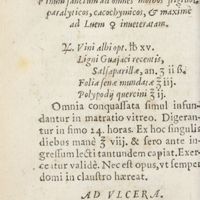 paralyticos, cacochymicos, & maximè
ad Luem ☿ inueteratam.
℞. Vini albi opt. ℔ xv.
Ligni Guajaci recentis,
Salsaparillæ, an. ʒ ii ß.
Folia senæ mundatæ ʒ iij.
Polypodij quercini ʒ ij.
Omnia conquassata simul infun-
dantur in matratio vitreo. Digeran-
tur in fimo 24. horas. Ex hoc singulis
diebus manè ʒ viij, & sero ante in-
gressum lecti tantundem capiat. Exer-
ceatur validè. Nec est opus, vt semper
domi in claustro hæreat.
AD VLCERA.